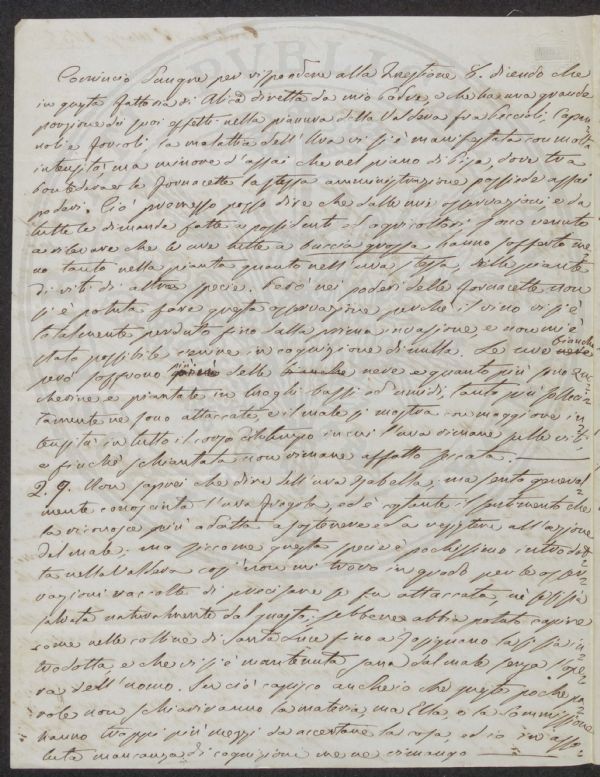 Comincio dunque per rispondere alla Questione 8. dicendo che
in questa fattoria di Alica diretta da mio Padre, e che ha una grande
porzione dei suoi effetti nella pianura della Valdera fra Peccioli, Capan=
noli e Forcoli, la malattia dell'Uva vi si è manifestata con molta
intensità ma minore d'assai che nel piano di Pisa dove tra
Pontedera e le Fornacette la stessa amministrazione possiede assai
poderi. Ciò premesso posso dire che dalle mie osservazioni e da
tutte le dimande fatte a possidenti ed agricoltori sono venuto
a rilevare che le uve tutte a buccia grossa, hanno sofferto me=
no tanto nella pianta quanto nell'uva stessa, delle piante
di viti di altra specie. Però nei poderi delle Fornacette non
si è potuta fare questa osservazione perché il vino vi si è
totalmente perduto fino dalla prima invasione e non mi è
stato possibile venire in cognizione di nulla. Le uve bianche
però soffrono più delle nere e quanto più sono zuc=
cherine e piantate in luoghi bassi ed umidi, tanto più solleci=
tamente ne sono attaccate e il male si mostra con maggiore in=
tensità in tutto il corso del tempo in cui l'uva rimane sulle viti
e finché schiantata non rimane affatto seccata.
2. 9. Non saprei che dire dell'uva Isabella, ma sento general=
mente conosciuta l'uva fragola, ed è costante il sentimento che
la riconosce più adatta a sostenere ed a resistere all'azione
del male; ma siccome questa specie è pochissimo introdot=
ta nella Valdera così non mi trovo in grado per le osser=
vazioni raccolte di precisare se fu attaccata, né se si sia
salvata naturalmente dal guasto; sebbene abbia potuto capire
come nelle colline di Santa Luce fino a Rosignano la si sia in=
trodotta, e che vi si è mantenuta sana dal male senza l'ope=
ra dell'uomo. In ciò capisco anch'io che queste poche pa=
role non schiariranno la materia, ma Ella, o la Commissione
hanno troppi più mezzi da accertare la cosa, ed io in asso=
luta mancanza di cognizioni me ne rimango